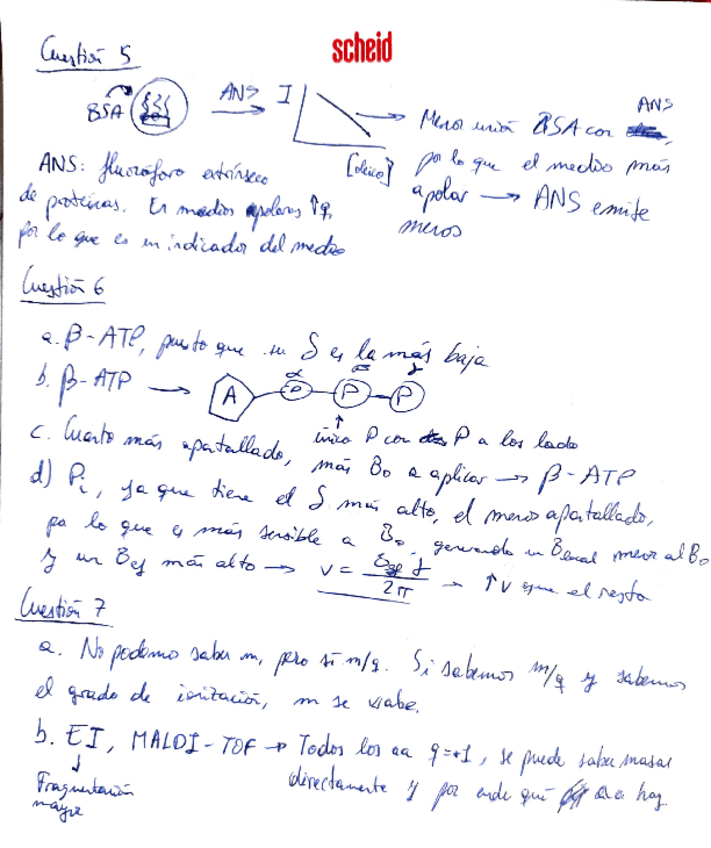 scheid
Cuestión 5
BSA
ANS
I
[oleico]
Menor unión BSA con ANS,
por lo que el medio más
apolar → ANS emite
menos
ANS: fluoróforo extrínseco
de proteínas. En medios apolares ↑q,
por lo que es un indicador del medio
Cuestión 6
a. β-ATP, puesto que su δ es la más baja
b. β-ATP → A P P P
α β γ
único P con P a los lados
c. Cuanto más apantallado, más B₀ a aplicar → β-ATP
d) Pi, ya que tiene el δ más alto, el menos apantallado,
por lo que es más sensible a B₀, generando un Blocal menor al B₀
y un Bef más alto → ν = Bef γ / 2π → ↑ν que el resto
Cuestión 7
a. No podemos saber m, pero sí m/q. Si sabemos m/q y sabemos
el grado de ionización, m se sabe.
b. EI, MALDI-TOF → Todos los aa q=+1, se puede saber masas
directamente y por ende qué aa hay
Fragmentación
mayor